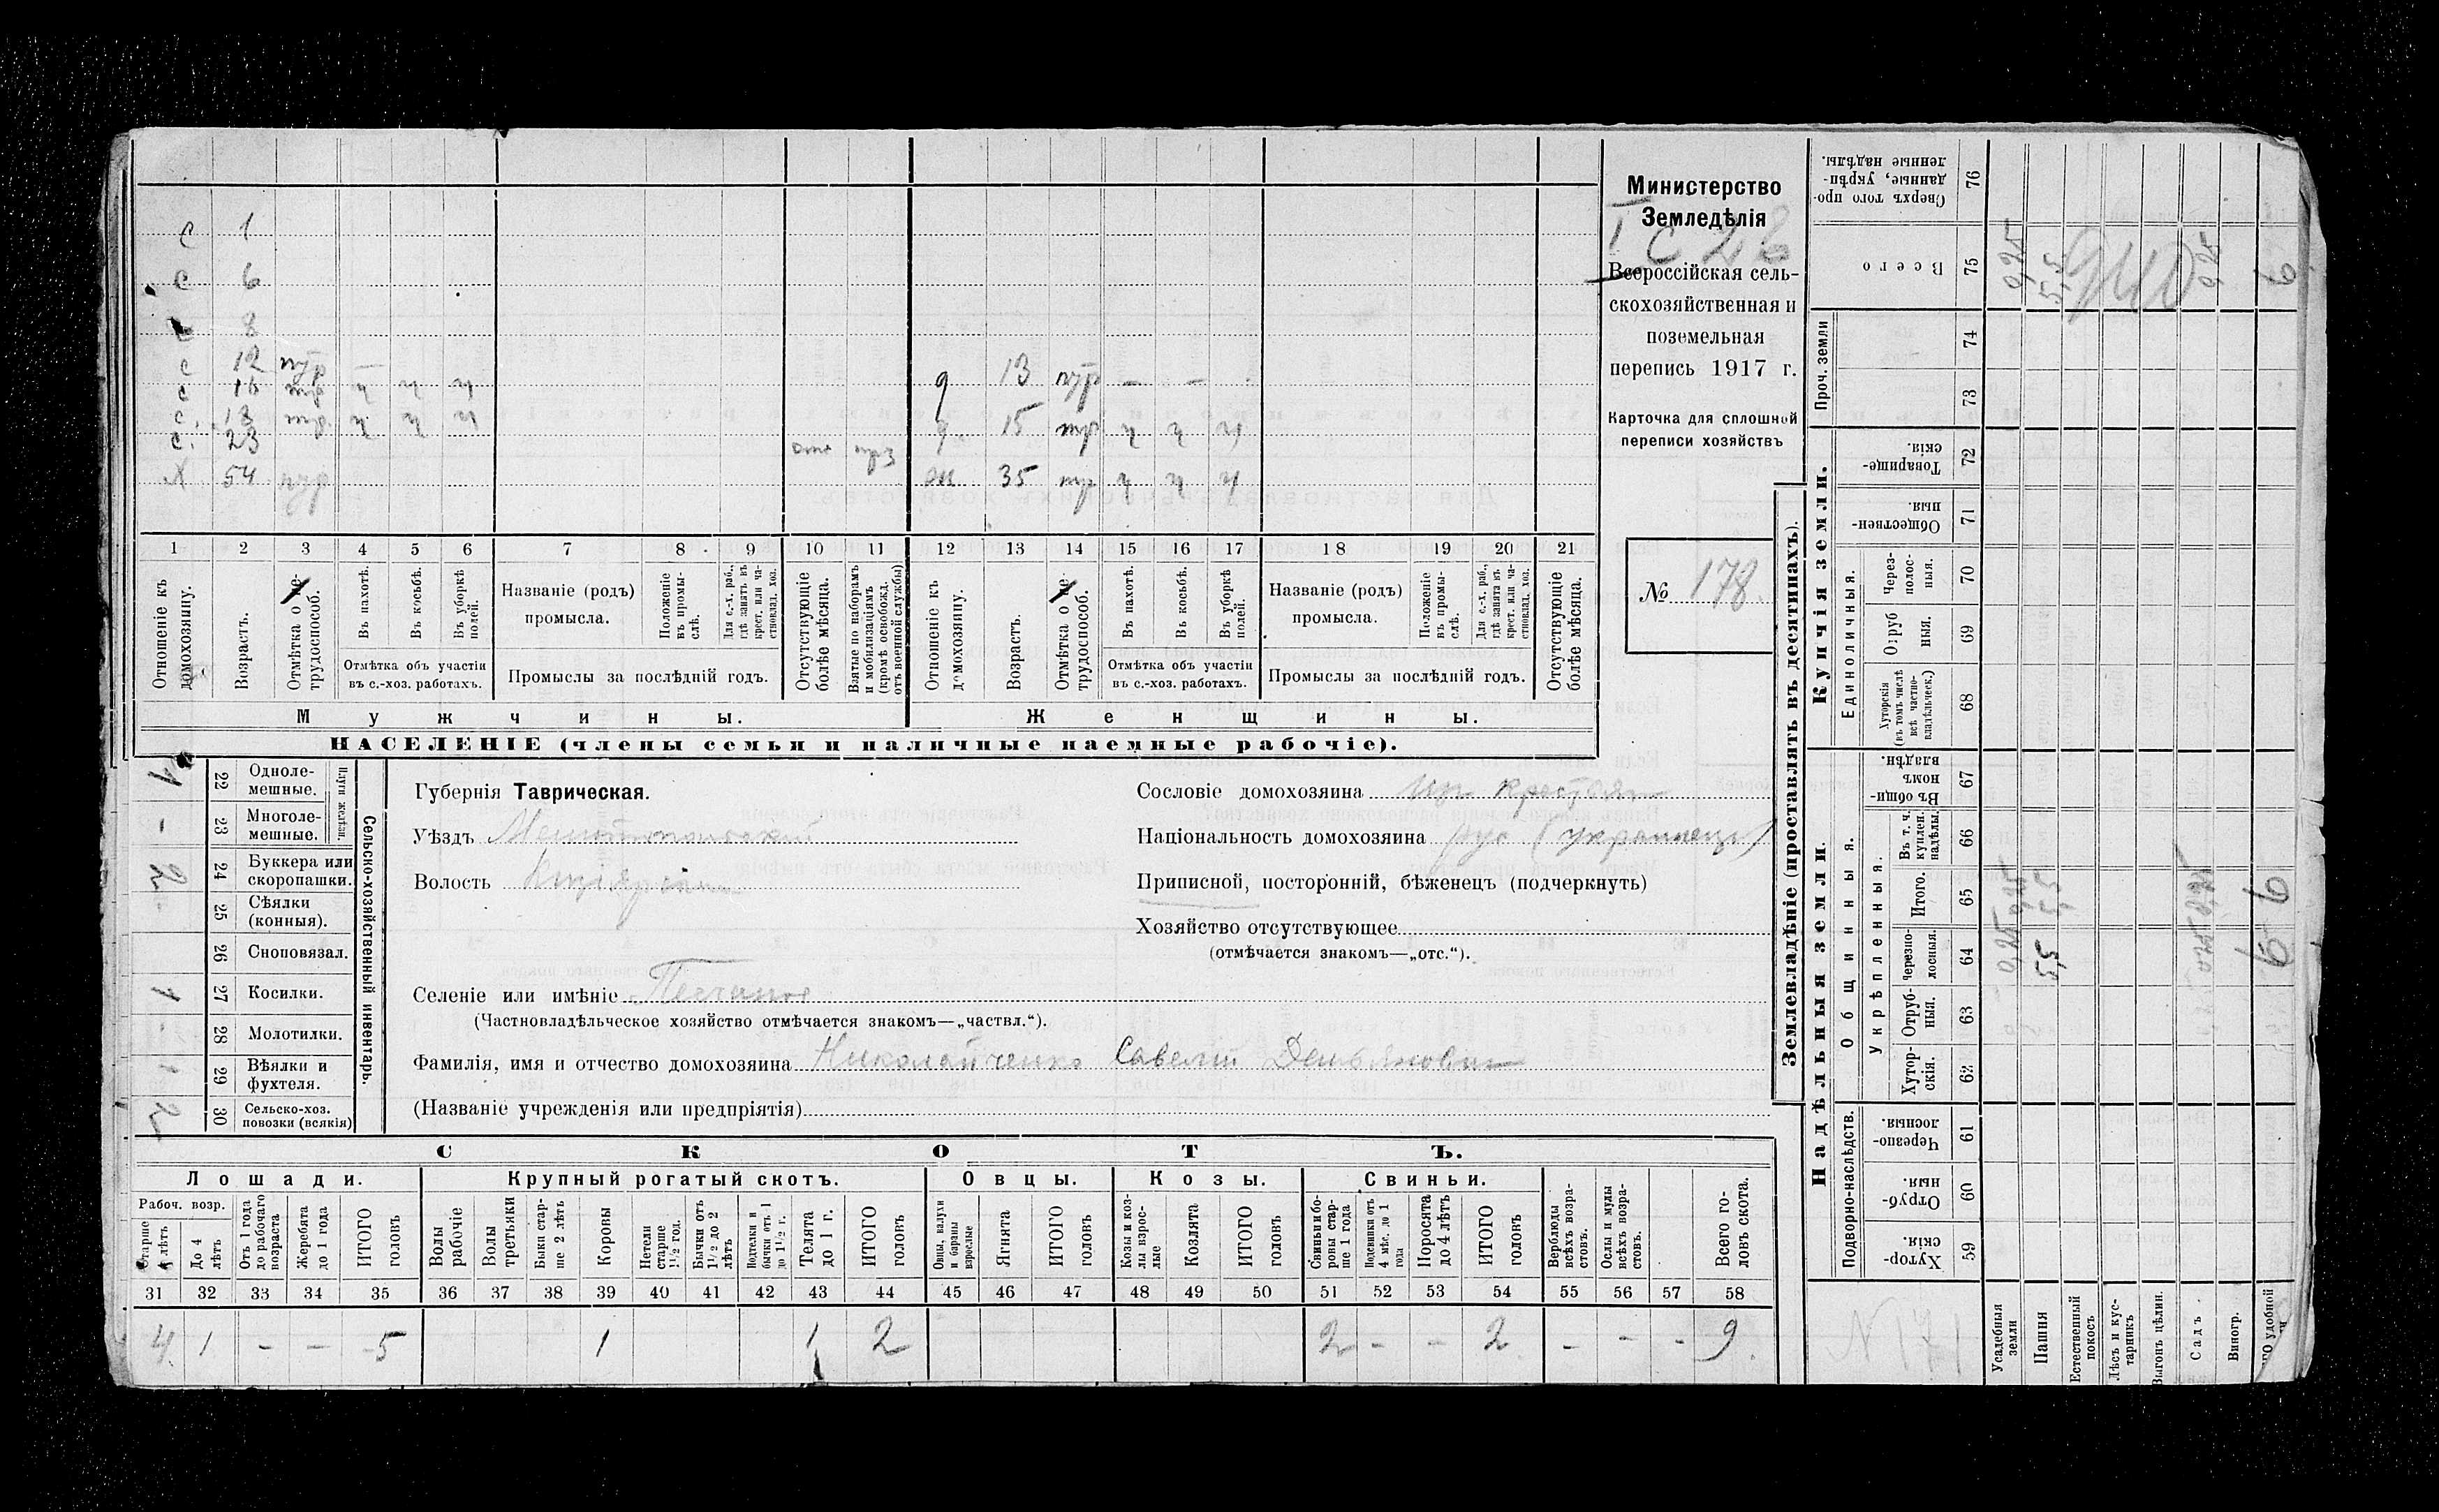 с 1
с 6
с 8
с 12 тр —
с 16 тр ч ч ч
с. 18 тр. ч ч ч
с. 23
Х 54 тр
д 13 тр — —
д. 15 тр ч ч ч
35 тр ч ч ч
1 2 3 4 5 6 7 8 9 10 11 12 13 14 15 16 17 18 19 20 21
Отношеніе къ домохозяину.
Возрастъ.
Отмѣтка о не-трудоспособ.
Въ пахотѣ.
Въ косьбѣ.
Въ уборкѣ полей.
Отмѣтка объ участіи въ с.-хоз. работахъ.
Названіе (родъ) промысла.
Положеніе въ промыслѣ.
Для с.-х. раб., гдѣ занятъ въ крест. или частновлад. хоз.
Промыслы за послѣдній годъ.
Отсутствующіе болѣе мѣсяца.
Взятые по наборамъ и мобилизаціямъ (кромѣ освобожд. отъ военной службы)
Отношеніе къ домохозяину.
Возрастъ.
Отмѣтка о не-трудоспособ.
Въ пахотѣ.
Въ косьбѣ.
Въ уборкѣ полей.
Отмѣтка объ участіи въ с.-хоз. работахъ.
Названіе (родъ) промысла.
Положеніе въ промыслѣ.
Для с.-х. раб., гдѣ занята въ крест. или частновлад. хоз.
Промыслы за послѣдній годъ.
Отсутствующіе болѣе мѣсяца.
Мужчины.
Женщины.
НАСЕЛЕНІЕ (члены семьи и наличные наемные рабочіе).
Министерство
Земледѣлія
Всероссійская сель-
скохозяйственная и
поземельная
перепись 1917 г.
Карточка для сплошной
переписи хозяйствъ
№ 178.
Сельско-хозяйственный инвентарь.
Плуги желѣзн.
22 Однолемешные. 1
23 Многолемешные. -
24 Буккера или скоропашки. 2
25 Сѣялки (конныя). -
26 Сноповязал.
27 Косилки. 1
28 Молотилки. -
29 Вѣялки и фухтеля. 1
30 Сельско-хоз. повозки (всякія) 2
Губернія Таврическая.
Уѣздъ Мелитопольскій
Волость
Сословіе домохозяина изъ крестьян
Національность домохозяина рус. (украинецъ)
Приписной, посторонній, бѣженецъ (подчеркнуть)
Хозяйство отсутствующее
(отмѣчается знакомъ—„отс.“).
Селеніе или имѣніе
(Частновладѣльческое хозяйство отмѣчается знакомъ—„частвл.“).
Фамилія, имя и отчество домохозяина Николайченко Савелій Демьянович
(Названіе учрежденія или предпріятія)
СКОТЪ.
Лошади. Крупный рогатый скотъ. Овцы. Козы. Свиньи.
Рабоч. возр.
Старше 4 лѣтъ
До 4 лѣтъ
Отъ 1 года до рабочаго возраста
Жеребята до 1 года
ИТОГО головъ
Волы рабочіе
Волы третьяки
Быки старше 2 лѣтъ
Коровы
Нетели старше 1½ год.
Бычки отъ 1½ до 2 лѣтъ
Подтелки и бычки отъ 1 до 1½ г.
Телята до 1 г.
ИТОГО головъ
Овцы, валухи и бараны взрослые
Ягнята
ИТОГО головъ
Козы и козлы взрослые
Козлята
ИТОГО головъ
Свиньи боровы старше 1 года
Подсвинки отъ 4 мѣс. до 1 года
Поросята до 4 лѣтъ
ИТОГО головъ
Верблюды всѣхъ возрастовъ.
Ослы и мулы всѣхъ возрастовъ.
Всего головъ скота.
31 32 33 34 35 36 37 38 39 40 41 42 43 44 45 46 47 48 49 50 51 52 53 54 55 56 57 58
4 1 - - 5 1 1 2 2 - - 2 - - - 9.
Землевладѣніе (проставлять въ десятинахъ).
Купчія земли.
Надѣльныя земли.
Сверхъ того проданные, укрѣпленные надѣлы. 76
Всего 75 0,25 5,5 0,25 6
Проч. земли
74
73
Товарищескія 72
Общественныя 71
Единоличныя.
Черезполосныя. 70
Отрубныя. 69
Хуторскія (въ томъ числѣ всѣ частновладѣльческ.) 68
Общинныя.
Въ общинномъ владѣн. 67
Укрѣпленныя.
Въ т. ч. куплен. надѣлы. 66
Итого. 65
Черезполосныя. 64
Отрубныя. 63
Хуторскія. 62
Подворно-наслѣдств.
Черезполосныя. 61
Отрубныя. 60
Хуторскія. 59
Усадебныя земли
Пашня
Естественный покосъ
Лѣсъ и кустарникъ
Выгонъ цѣлин.
Садъ.
Виногр.